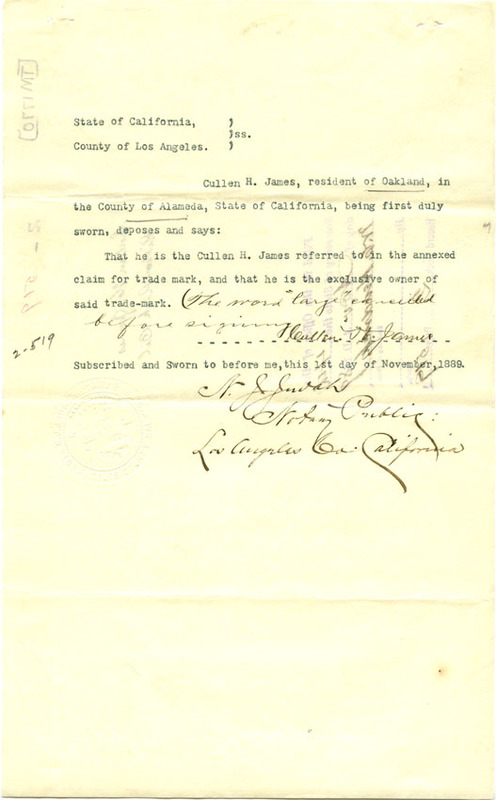 State of California, )
)ss.
County of Los Angeles. )
Cullen H. James, resident of Oakland, in
the County of Alameda, State of California, being first duly
sworn, deposes and says:
That he is the Cullen H. James referred to in the annexed
claim for trade mark, and that he is the exclusive owner of
said trade-mark. (The word "large" cancelled
before signing
Cullen H. James
2-519
Subscribed and Sworn to before me, this 1st day of November, 1889.
N. J. Judah
Notary Public
Los Angeles Co. California